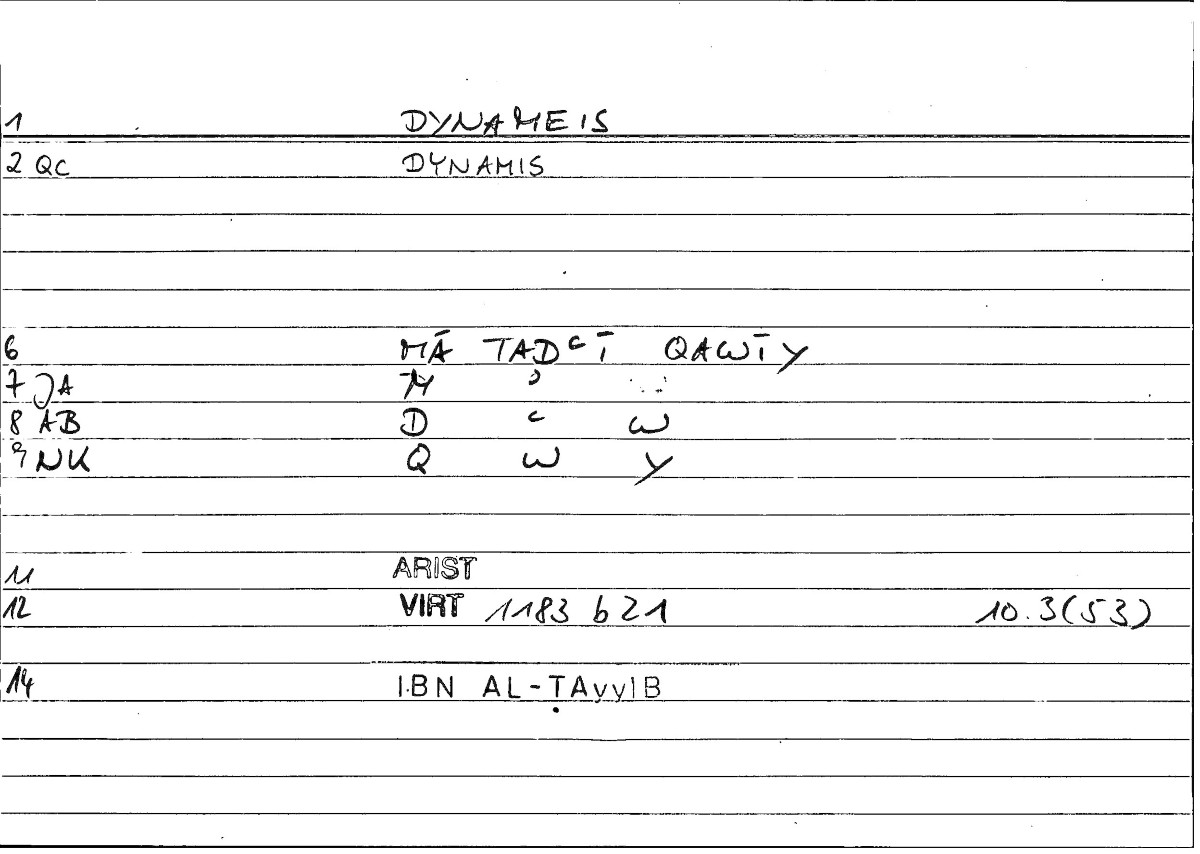 1 DYNAMEIS
2 QC DYNAMIS
6 MĀ TADʿĪ QAWĪY
7 JA M ʾ
8 AB D ʿ W
9 NK Q W Y
11 ARIST
12 VIRT 1183 b 21 10.3(53)
14 IBN AL-ṬAyyIB